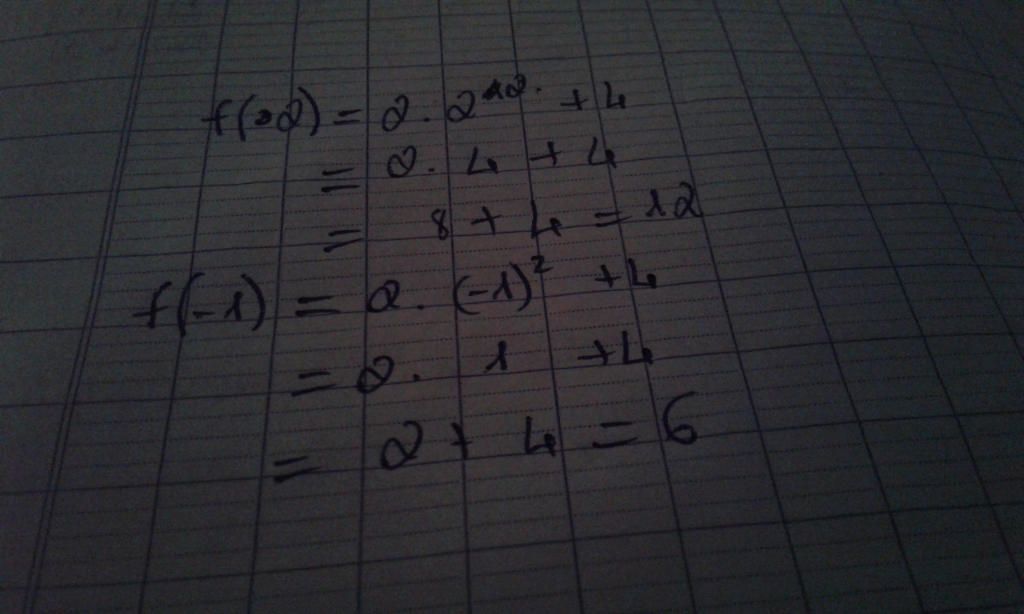 f(2) = 2 . 2² . + 4
= 2 . 4 + 4
= 8 + 4 = 12
f(-1) = 2 . (-1)² + 4
= 2 . 1 + 4
= 2 + 4 = 6